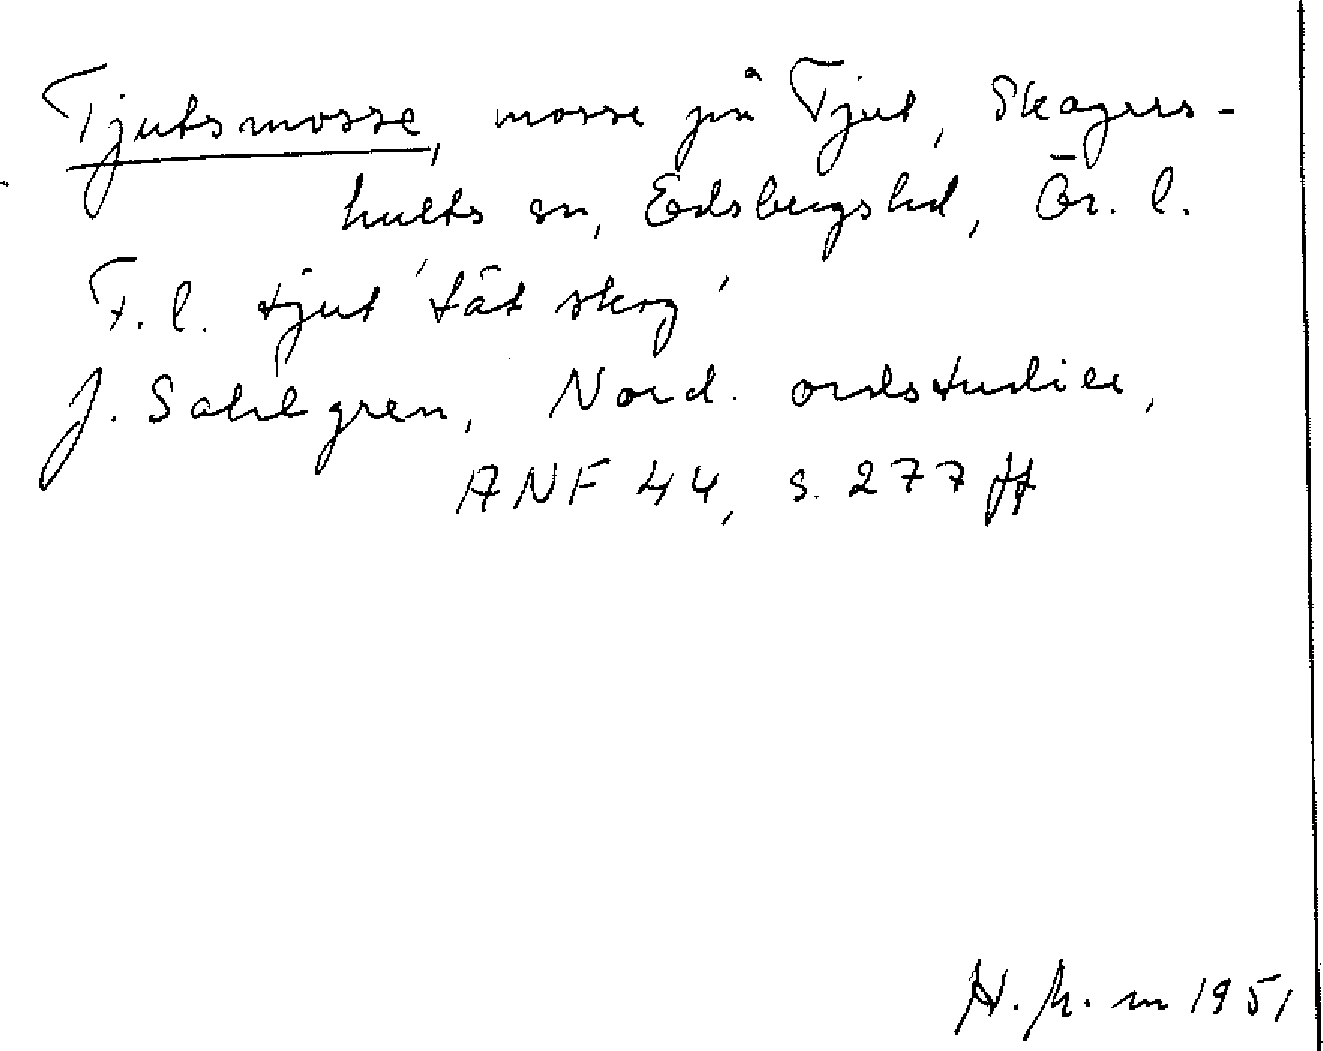 Tjutsmosse, mosse på Tjut, Skagers-
hults sn, Edsbergs hd, Ör. l.
F. l. tjut 'tät skog'
J. Sahlgren, Nord. ordstudier,
ANF 44, s. 277 ff
1951